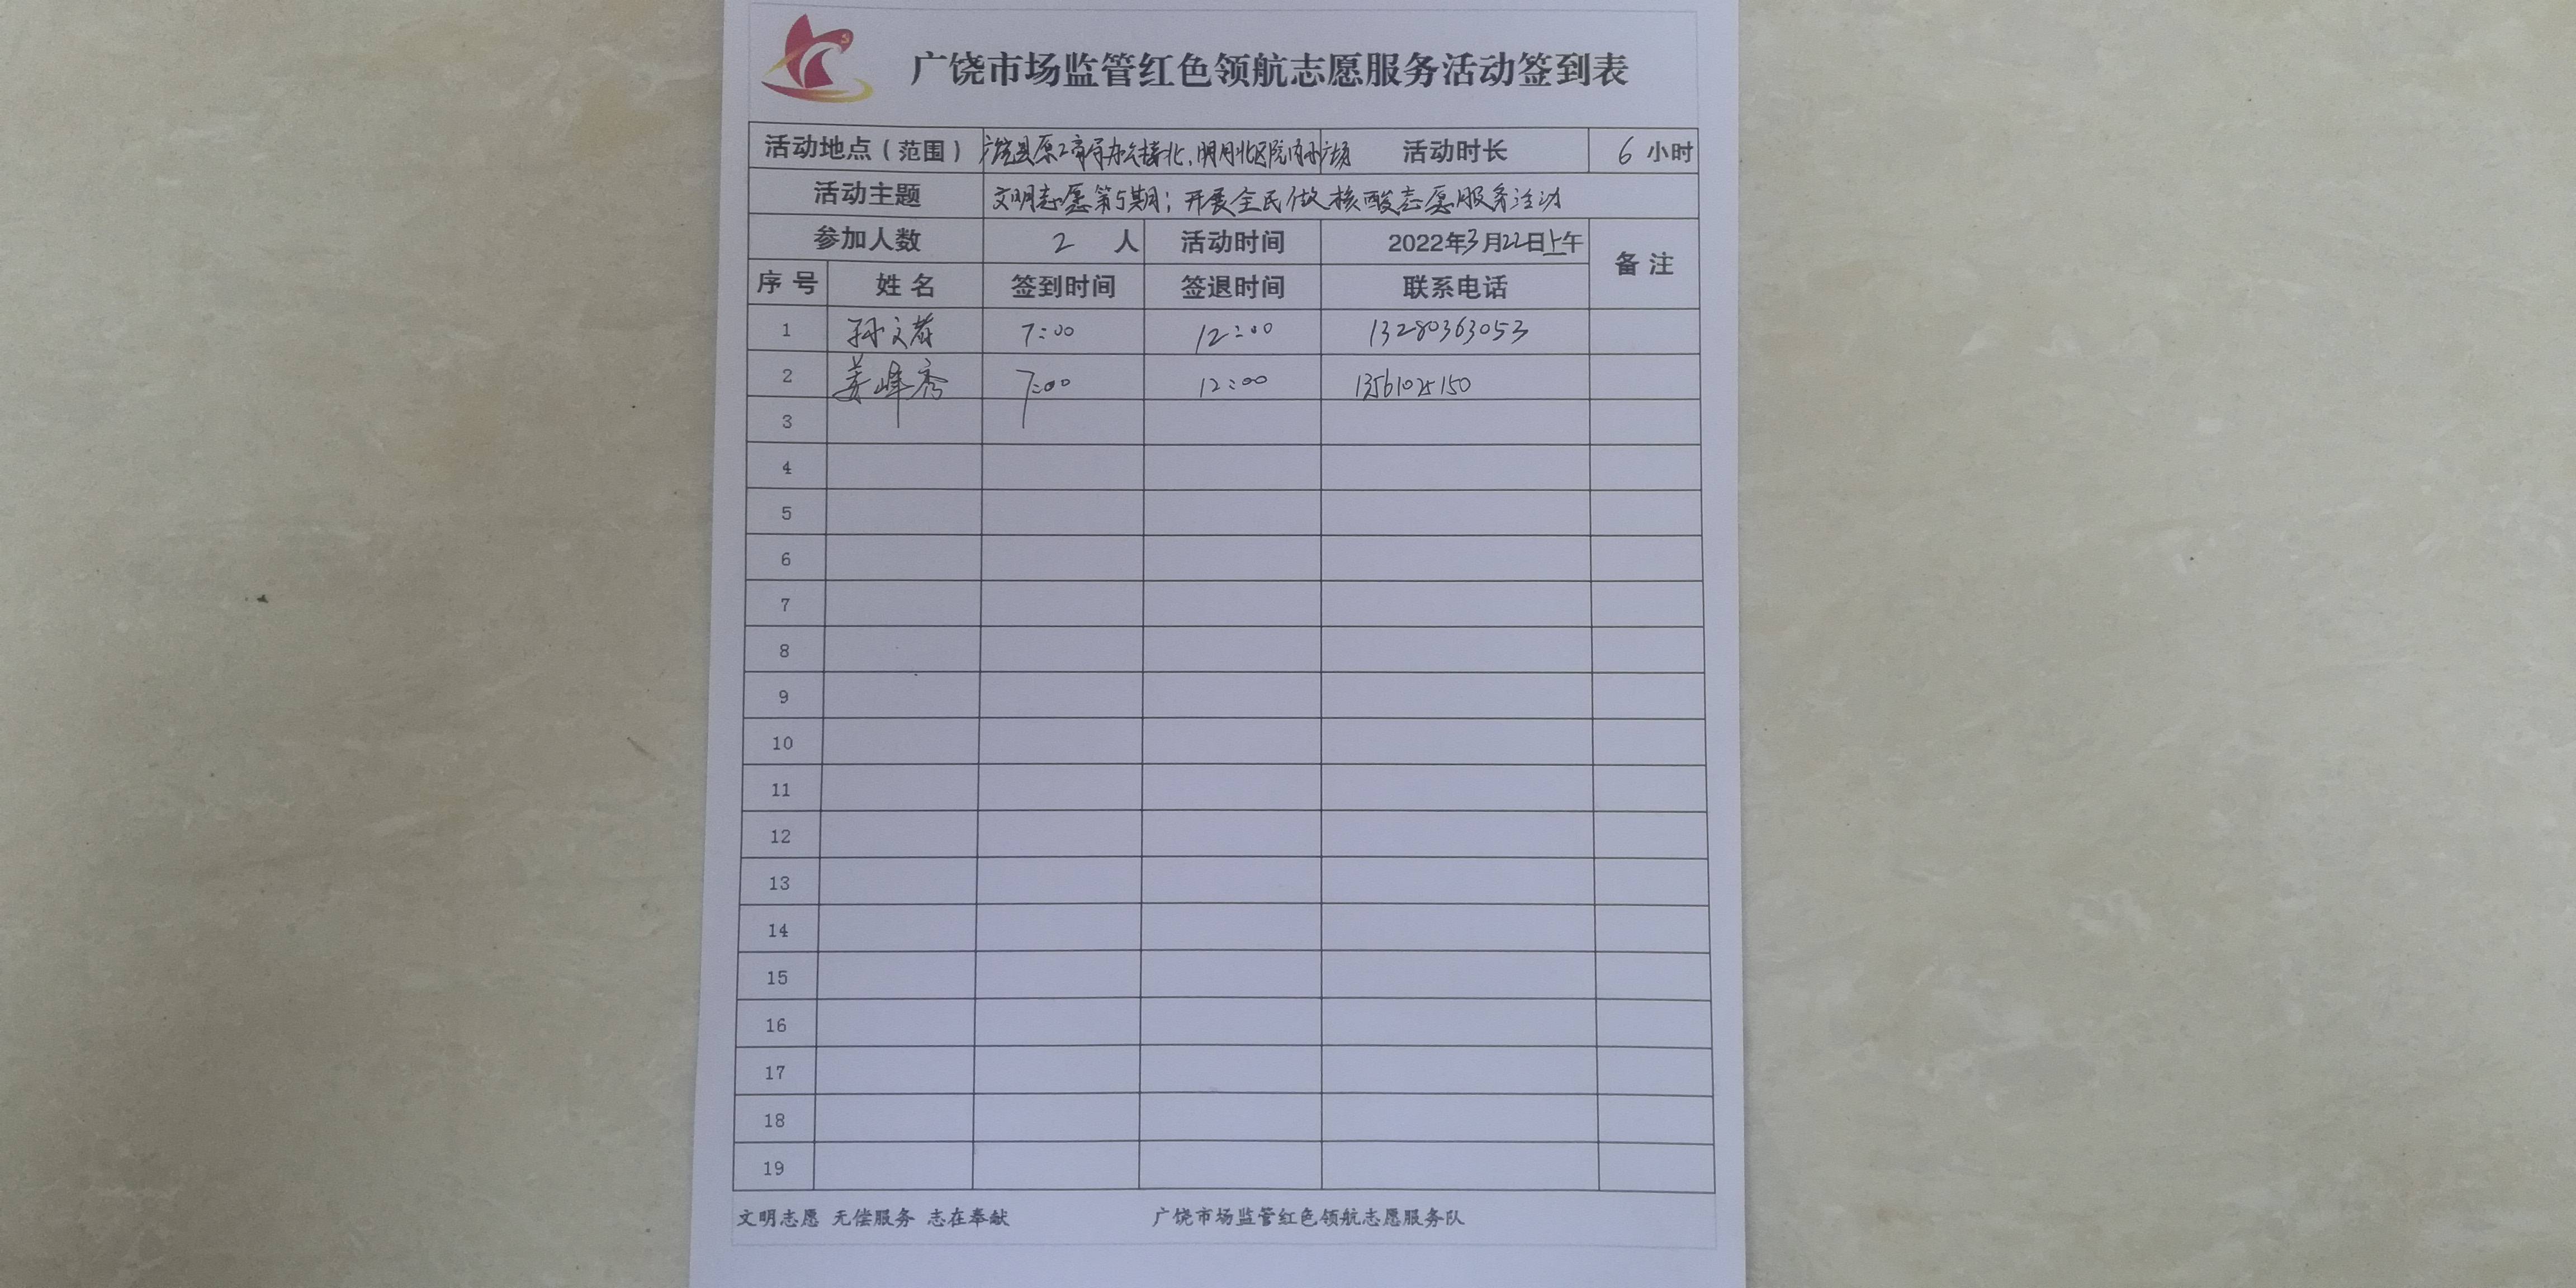 广饶市场监管红色领航志愿服务活动签到表
活动地点（范围） 广饶县原工商局办公楼北、明月北区院内小广场 活动时长 6 小时
活动主题 文明志愿第5期；开展全民做核酸志愿服务活动
参加人数 2 人 活动时间 2022年3月22日上午 备注
序号 姓名 签到时间 签退时间 联系电话
1 孙文 7:00 12:00 13280363053
2 姜峰秀 7:00 12:00
3
4
5
6
7
8
9
10
11
12
13
14
15
16
17
18
19
文明志愿 无偿服务 志在奉献 广饶市场监管红色领航志愿服务队